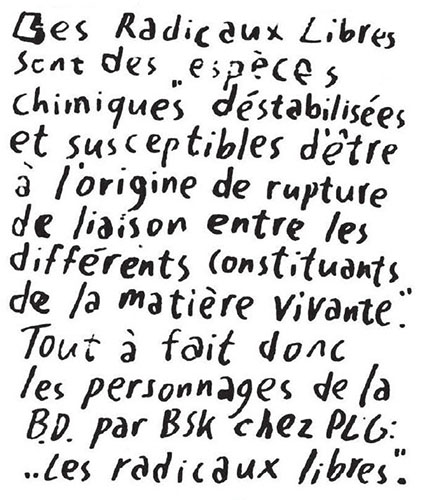 Les Radicaux Libres
sont des "espèces
chimiques" déstabilisées
et susceptibles d'être
à l'origine de rupture
de liaison entre les
différents constituants
de la matière vivante".
Tout à fait donc
les personnages de la
B.D. par BSK chez PLG:
"Les radicaux libres".